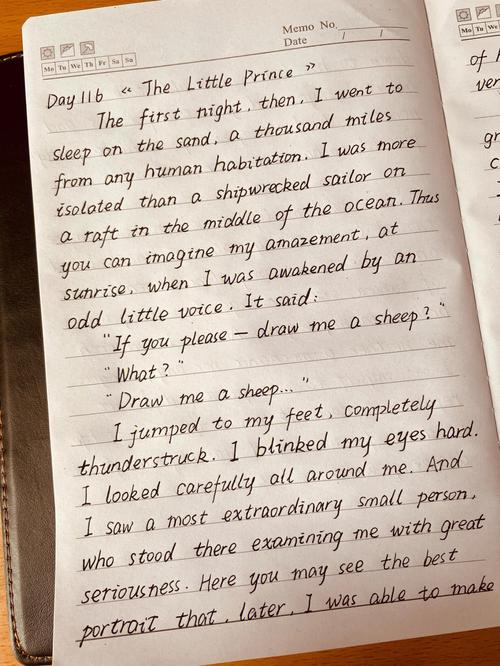 Memo No.
Date / /
Mo Tu We Th Fr Sa Su
Day 116 《The Little Prince》
The first night, then, I went to
sleep on the sand, a thousand miles
from any human habitation. I was more
isolated than a shipwrecked sailor on
a raft in the middle of the ocean. Thus
you can imagine my amazement, at
sunrise, when I was awakened by an
odd little voice. It said:
"If you please — draw me a sheep?"
"What?"
"Draw me a sheep..."
I jumped to my feet, completely
thunderstruck. I blinked my eyes hard.
I looked carefully all around me. And
I saw a most extraordinary small person,
who stood there examining me with great
seriousness. Here you may see the best
portrait that, later, I was able to make
Mo Tu We
of